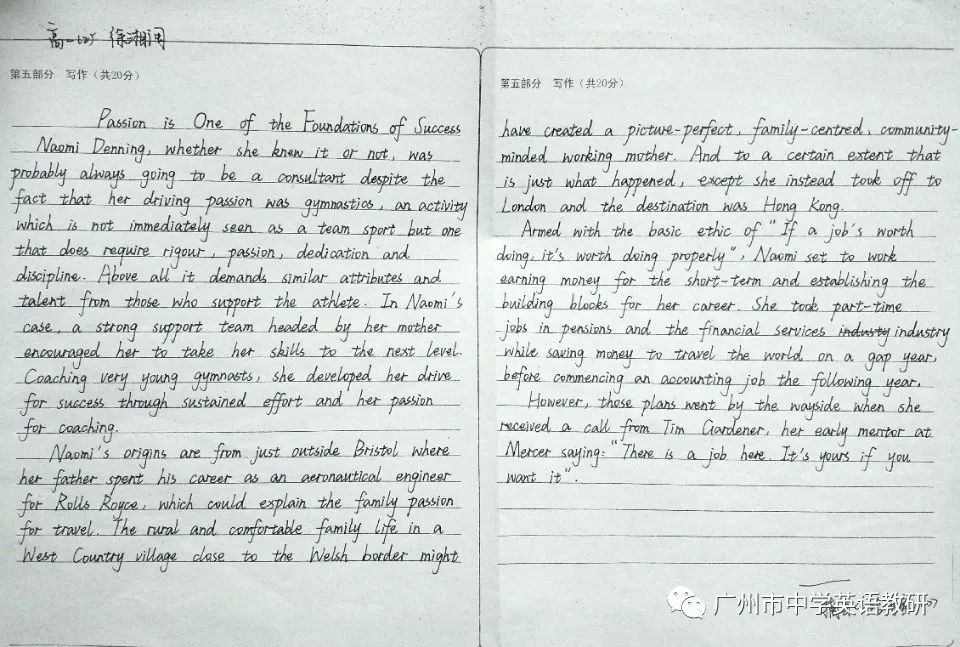 高一(2) 徐湘闻
第五部分 写作（共20分）
Passion is One of the Foundations of Success
Naomi Denning, whether she knew it or not, was
probably always going to be a consultant despite the
fact that her driving passion was gymnastics, an activity
which is not immediately seen as a team sport but one
that does require rigour, passion, dedication and
discipline. Above all it demands similar attributes and
talent from those who support the athlete. In Naomi's
case, a strong support team headed by her mother
encouraged her to take her skills to the next level.
Coaching very young gymnasts, she developed her drive
for success through sustained effort and her passion
for coaching.
Naomi's origins are from just outside Bristol where
her father spent his career as an aeronautical engineer
for Rolls Royce, which could explain the family passion
for travel. The rural and comfortable family life in a
West Country village close to the Welsh border might
第五部分 写作（共20分）
have created a picture-perfect, family-centred, community-
minded working mother. And to a certain extent that
is just what happened, except she instead took off to
London and the destination was Hong Kong.
Armed with the basic ethic of "If a job's worth
doing, it's worth doing properly", Naomi set to work
earning money for the short-term and establishing the
building blocks for her career. She took part-time
jobs in pensions and the financial services industy industry
while saving money to travel the world on a gap year,
before commencing an accounting job the following year.
However, those plans went by the wayside when she
received a call from Tim Gardener, her early mentor at
Mercer saying: "There is a job here. It's yours if you
want it".
广州市中学英语教研